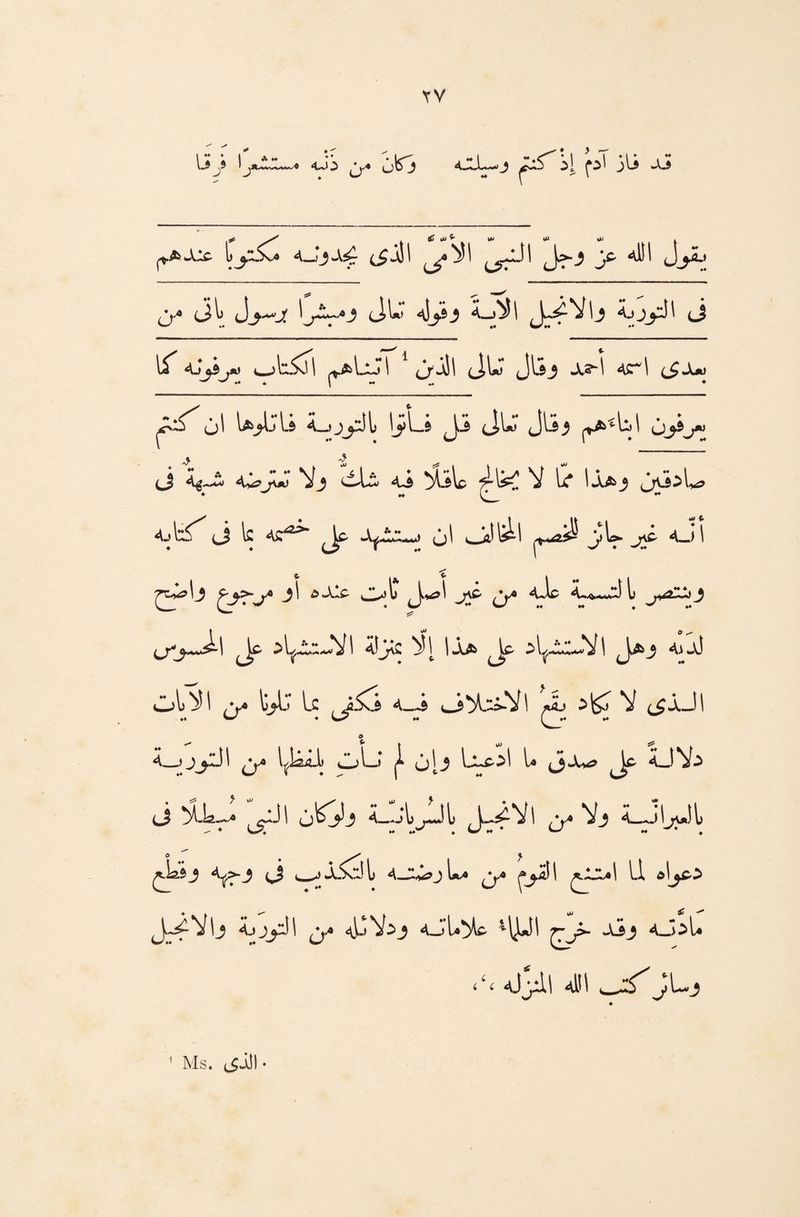 ٢٧
قد فاز آدم إذ كنتم وسيلته وكان من ذنبه مستشعرا فرقا
يقول الله عزّ وجلّ النبىّ الأمّىّ الذى يجدونه مكتوبًا عندهم
فى التورية والانجيل الآية وقوله تعالى ومبشّرًا برسول ياتى من
بعدى اسمه أحمد وقال تعالى الذين ¹ آتيناهم الكتاب يعرفونه كما
يعرفون ابناءهم وقال تعالى قل فأتوا بالتورية فاتلوها ان كنتم
صادقين وهذا ممّا لا يخالج عاقلا فيه شكّ ولا تعترضه شبهة فى
أنّه غير جائز للخصم المخالف ان يستشهد على خصمه بما فى كتابه
وينتصر بالتسمية عليه من غير أصل ثابت عنده أو مرجوع واضح
لديه وهل الاستشهاد على هذا إلّا بمنزلة الاستشهاد على المحسوس
الذى لا يكاد يقع الاختلاف فيه فكفى بما تلونا من الآيات
دلالة على صدق ما ادّعينا وإن لم نأت بلفظها من التورية
بالعبرانية ولا من الانجيل بالسريانيّة ولو كان النبىّ مبطلا فى
دعواه لما امتنع القوم من معارضته بالتكذيب فى وجهه وقطع
مادّته وقد خرّج العلماء علاماته ودلائله من التورية والانجيل
وسائر كتب الله المنزلة ،‘،
¹ Ms. الذى.